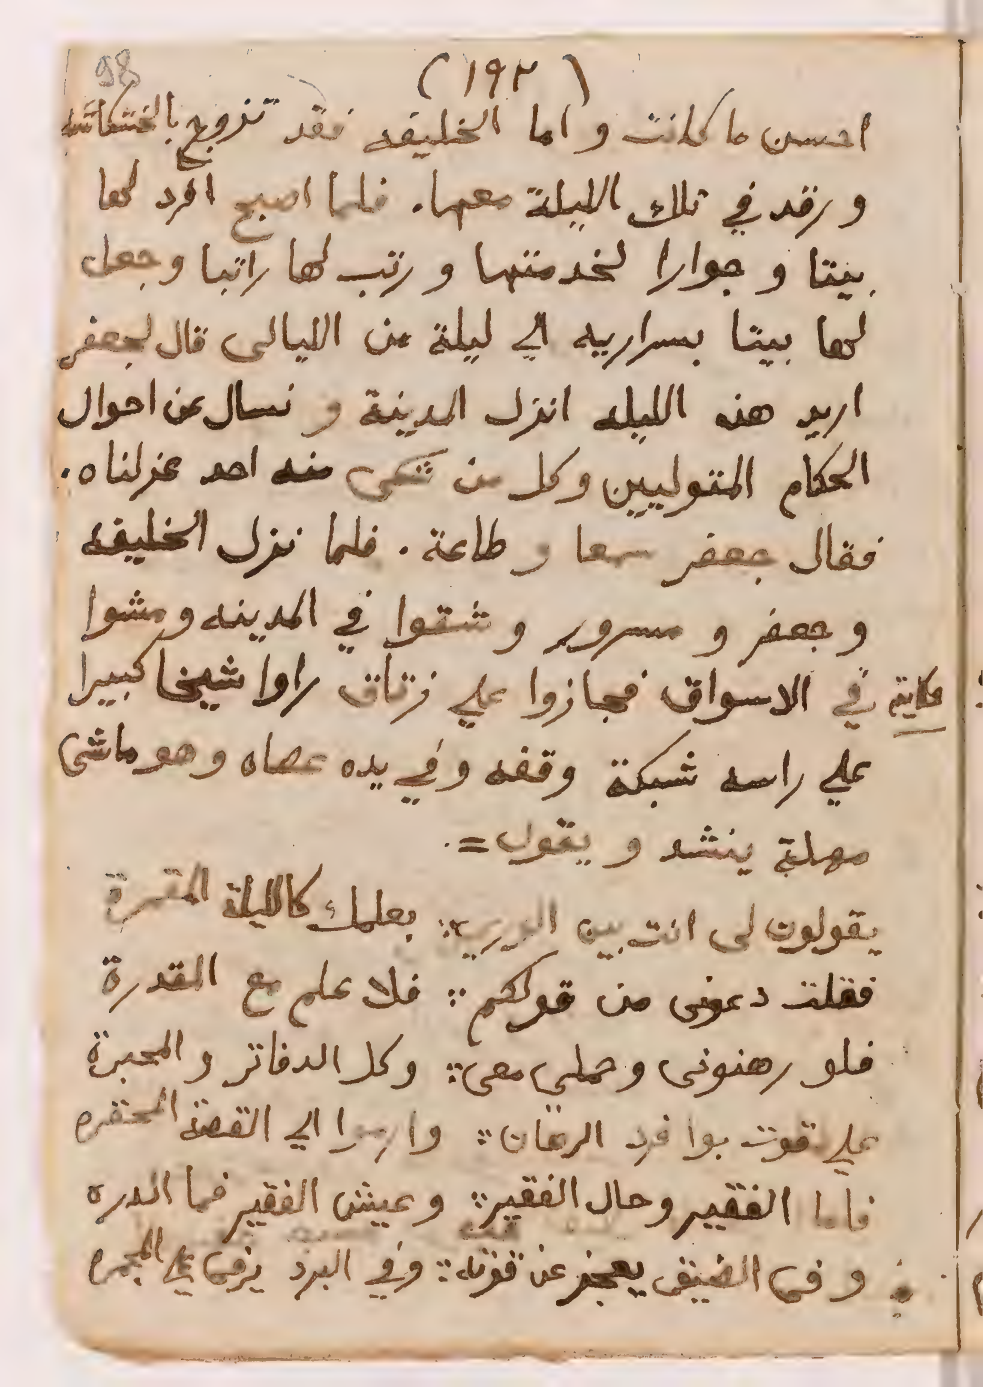 98
(١٩٢)
احسن ما كانت و اما الخليفه فقد تزوج
و رقد في تلك الليلة معها. فلما اصبح افرد لها
بيتا و جوارا لخدمتها و رتب لها راتبا وجعل
لها بيتا بسراريه الي ليلة من الليالى قال لجعفر
اريد هذه الليله انزل المدينة و نسال عن احوال
الحكام المتوليين وكل من شكى منه احد عزلناه.
فقال جعفر سمعا و طاعة. فلما نزل الخليفه
و جعفر و مسرور و شقوا في المدينه ومشوا
حكاية في الاسواق فجازوا علي زقاق راوا شيخا كبيرا
علي راسه شبكة وقفه وفي يده عصاه وهو ماشى
مهلة ينشد و يقول =.
يقولون لى انت بين الوري :: بعلمك كالليلة المقمرة
فقلت دعونى من قولكم :: فلا علم مع القدرة
فلو رهنونى وحملى معى :: وكل الدفاتر و المحبرة
علي قوت يوا فرد :: الي القصة المحتقره
فاما الفقير وحال الفقير :: وعيش الفقير فما اكدره
و فى الضيف يعجز عن قوته :: وفي البرد يرقى علي المجمره